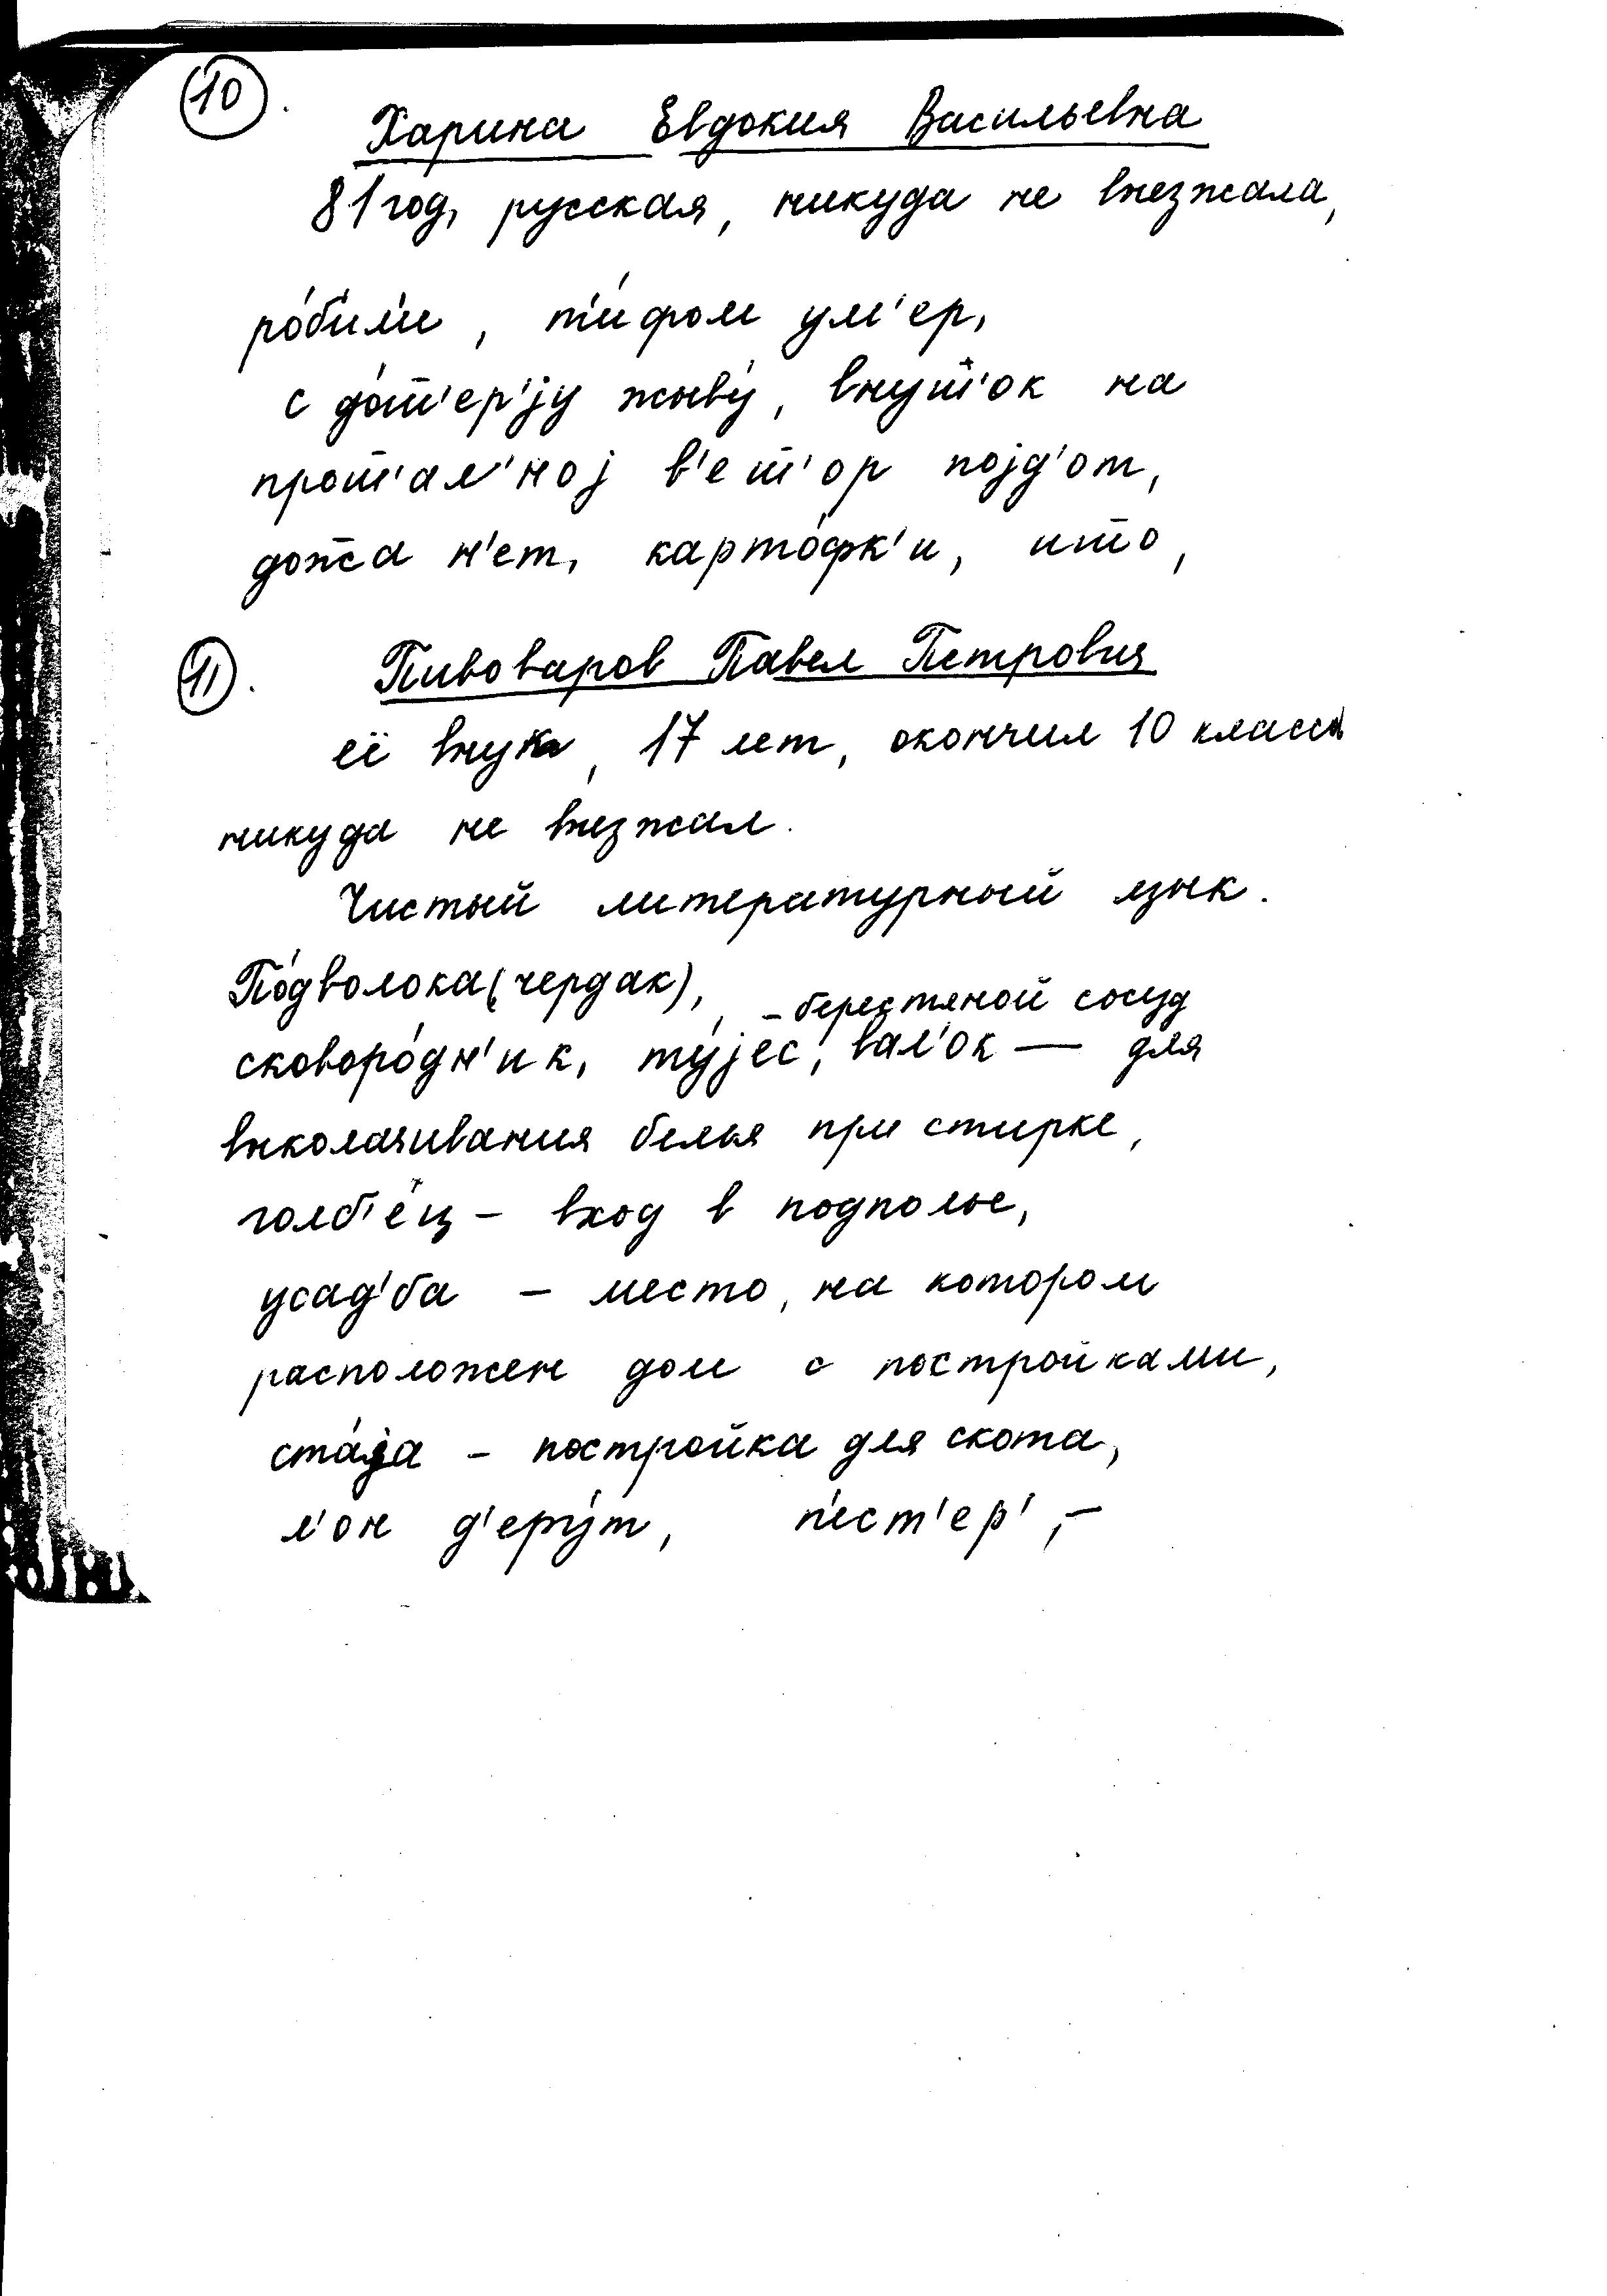 10.
Харина Евдокия Васильевна
81 год, русская, никуда не выезжала,
ро́бил'и, т'и́фом ум'ер,
с до́т'ер'jу жыву́, внут'ок на
прот'ал'ноj в'ет'ор поjд'от,
н'ет, карто́фк'и, што,
11. Пивоваров Павел Петрович
её внук, 17 лет, окончил 10 классов
никуда не выезжал.
Чистый литературный язык.
По́дволока (чердак),
– берестяной сосуд
сковоро́дн'ик, ту́jес, вал'ок — для
выколачивания белья при стирке,
голб'е́ц – вход в подполье,
усад'ба – место, на котором
расположен дом с постройками,
ста́jа – постройка для скота,
л'он д'еру́т, п'ест'ер', –